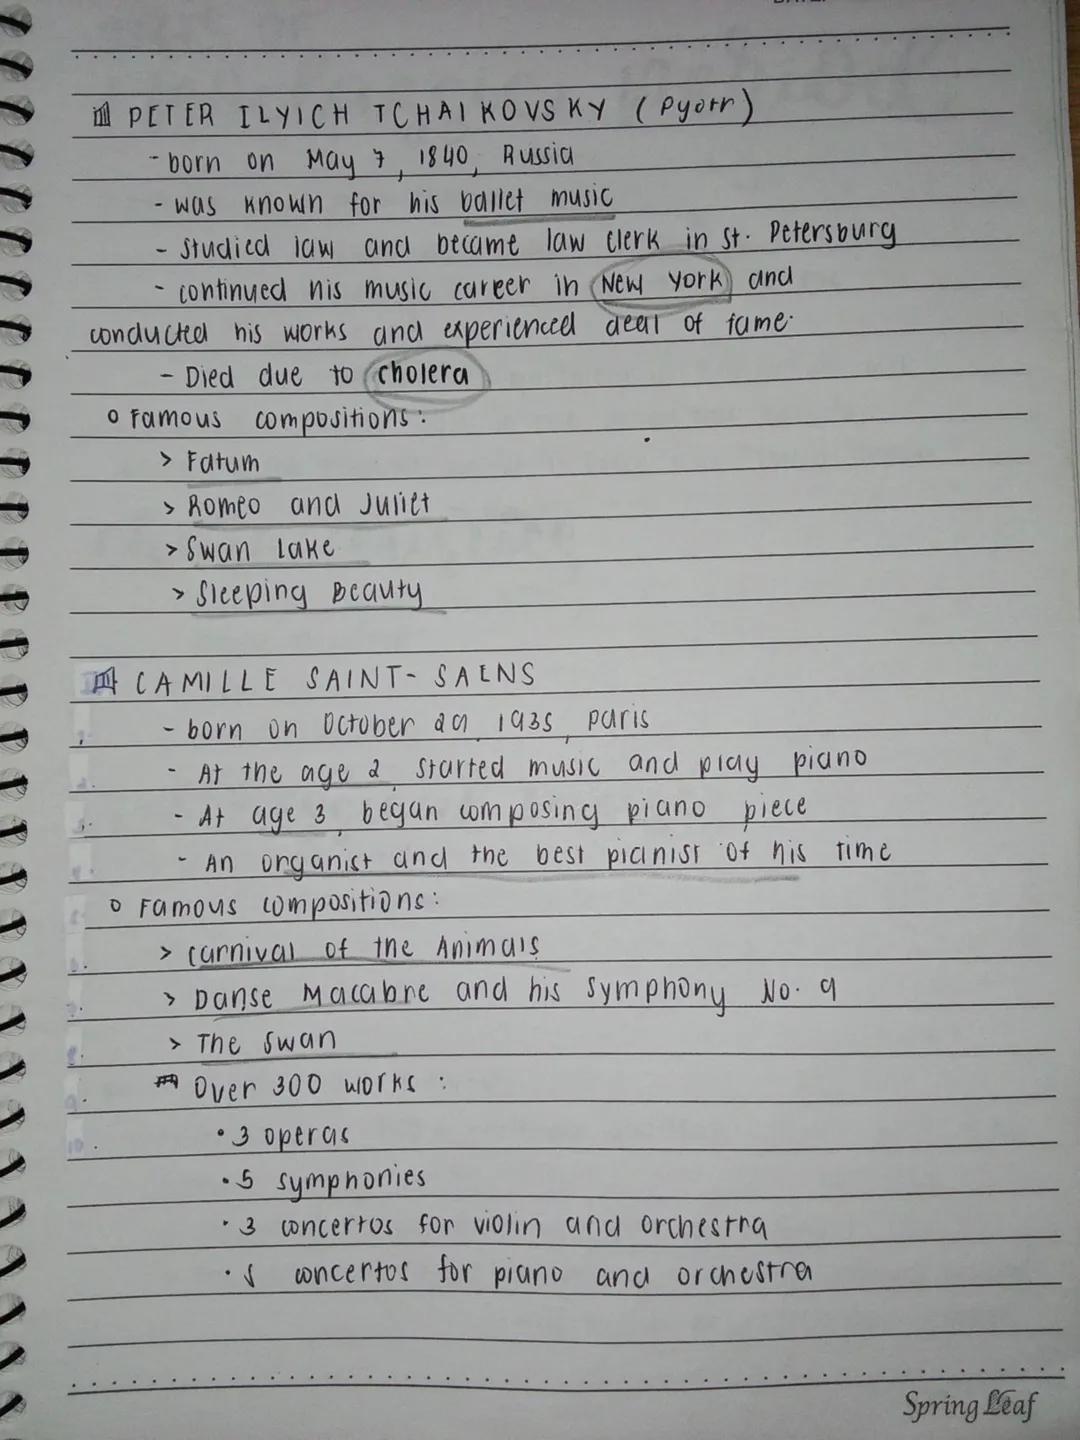 PETER ILYICH TCHAIKOVSKY (Pyotr)
- born on May 7, 1840, Russia
- was known for his ballet music
- Studied law and became law clerk in St. Petersburg
- continued his music career in New York and
conducted his works and experienced deal of fame.
- Died due to cholera
o Famous compositions:
> Fatum
> Romeo and Juliet
> Swan Lake
> Sleeping Beauty
CAMILLE SAINT-SAENS
- born on October 29, 1935, Paris
- At the age 2, started music and play piano
- At age 3, began composing piano piece
- An organist and the best pianist of his time
o Famous compositions:
> Carnival of the Animals
> Danse Macabre and his Symphony No. 9
> The Swan
Over 300 works:
• 3 operas
• 5 symphonies
• 3 concertos for violin and orchestra
• 5 concertos for piano and orchestra
Spring Leaf